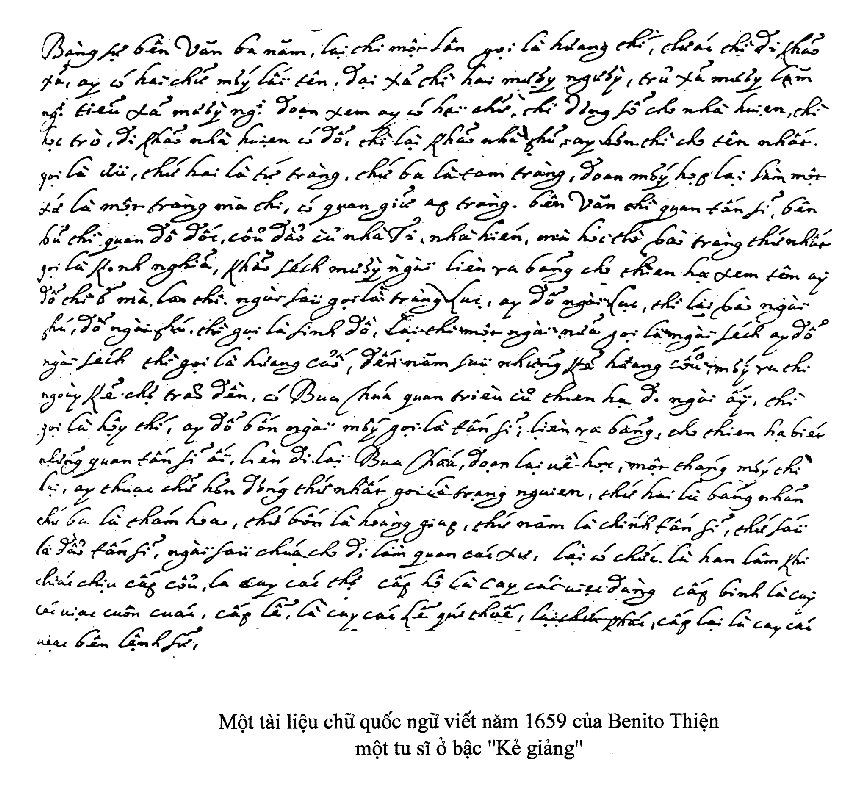 Bàng sự bên Văn ba năm, lại thi một lần gọi là hương thí, chưác thi đi khảo
xã, ay có hai chữ mớy lấi tên, đại xã thì hai mươy người, trủ xã mươy lăm
ng̃. tiểu xã mươy ng̃. đoạn xem ay có hai chữ, thì dóng sổ cho nhà huiẹn, thì
học trò, đi khảo nhà huiẹn có đổ, thì lại khảo nhà phủ, ay hơn thì cho tên nhất.
gọi là thứ hai là tứ tràng, thứ ba là tam tràng, đoạn mớy họp lại làm một
xứ là một tràng mà thi, có quan giữ ap tràng. bên Văn thì quan tấn sĩ, bên
bũ thì quan đô đốc, cũ nhà Ti, nhà hiến, mà học trò bào tràng thứ nhất
gọi là Kinh nghĩa, khảo sách mươy ngài liên ra bảng cho thien hạ xem tên ay
đổ thì ở mà thi. ngài sau gọi là tràng lục, ay đổ ngài lục, thì lại bào ngài
phú, đổ ngài phú thì gọi là sinh đồ, lại thi một ngài nữa gọi là ngài sách ay đổ
ngài sách thì gọi là hương cống, đến năm sau những kẻ hương cống mớy ra thi
ngoày Kẻ chợ trào đền, có Bua Chúa quan triều cũ thien hạ đi ngài ấy, thì
gọi là hộy thí, ay đổ bốn ngài mớy gọi là tấn sĩ, liên ra bảng, cho thien hạ biết
những quan tấn sĩ ấi, liên đi lại Bua Chúa, đoạn lại uề học, một tháng mớy thi
lại, ay thuạc chữ hơn dóng thứ nhất gọi là trạng nguien, thứ hai là bảng nhãn
thứ ba là thám hoa, thứ bốn là hoàng giap, thứ năm là chính tấn sĩ, thứ sáu
là đồ tấn sĩ, ngài sau chúa cho đi làm quan các xứ, lại có chức là han lâm thì
chưác chịu cấp cổu, là cay các thợ cấp hộ là cay các uiẹc dạng cấp binh là cay
các uiạc cuôn cuác, cấp lễ, là cay các kẻ gúc thuế, cấp lại là cay các
uiạc bên lệnh sử,
Một tài liệu chữ quốc ngữ viết năm 1659 của Benito Thiện
một tu sĩ ở bậc "Kẻ giảng"